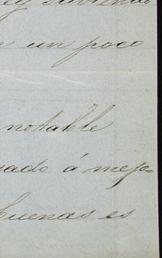 un poco
notable
sado á mejo-
buenas es